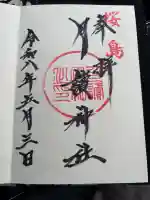 桜島
奉拝
月讀神社
令和八年五月三日